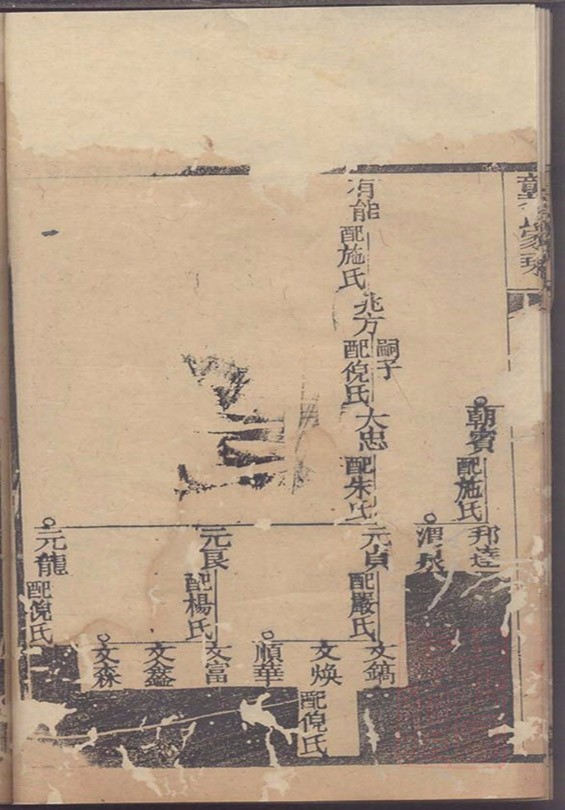 朝賓
配施氏
邦達
渭泉
有能
配施氏
兆方
嗣子
配倪氏
大忠
配朱氏
元貞
配嚴氏
文鎬
文煥
配倪氏
順華
元良
配楊氏
文富
文鑫
文森
元龍
配倪氏